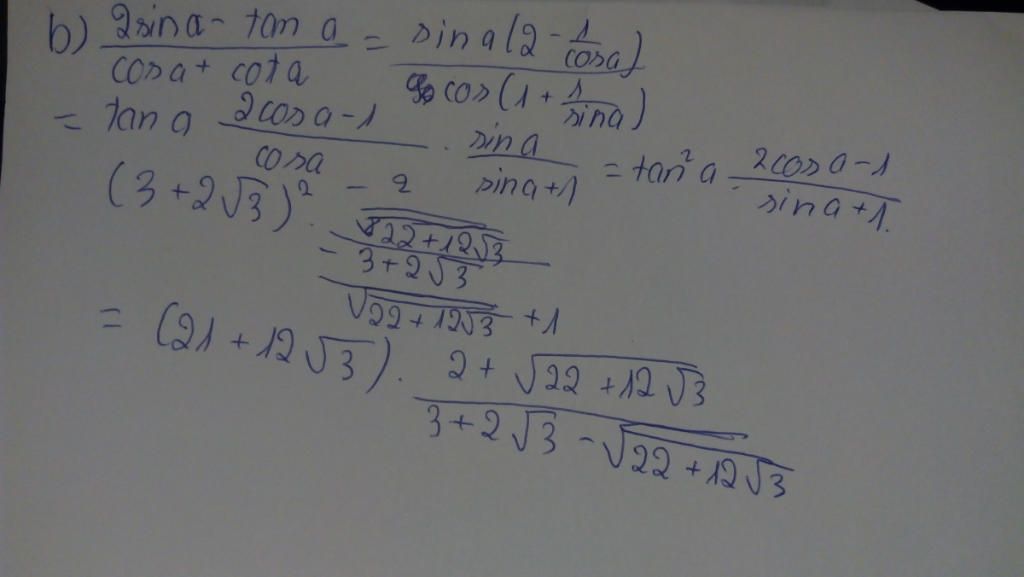 b) (2sin a - tan a)/(cos a + cot a) = (sin a(2 - 1/cos a))/(cos(1 + 1/sin a))
= tan a (2cos a - 1)/(cos a) · (sin a)/(sin a + 1) = tan² a · (2cos a - 1)/(sin a + 1).
(3 + 2√3)² · (-2/√(22 + 12√3) - 1)/(-(3 + 2√3)/√(22 + 12√3) + 1)
= (21 + 12√3) · (2 + √(22 + 12√3))/(3 + 2√3 - √(22 + 12√3))